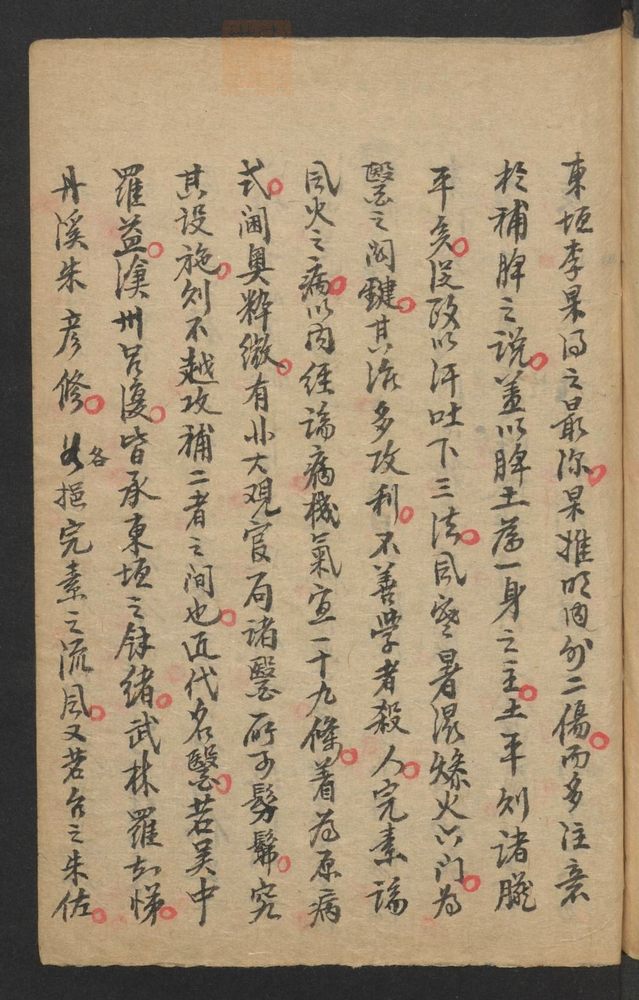 東垣李杲得之最深。杲推明內外二傷。而多注意
於補脾之說。盖以脾土為一身之主。土平則諸臟
平矣。從政以汗吐下三法。風寒暑濕燥火六门。為
醫之関鍵。其法多攻利。不善學者殺人。完素論
風火之病。以內經論病機氣宜一十九條。著為原病
式。閫奥粹微。有非大觀官局諸醫所可髣髴。究
其設施。則不越攻補二者之间也。近代名醫。若吴中
羅益。滄州呂復。皆承東垣之餘緒。武林羅知悌。
丹溪朱彦修。各挹完素之流風。又若台之朱佐。